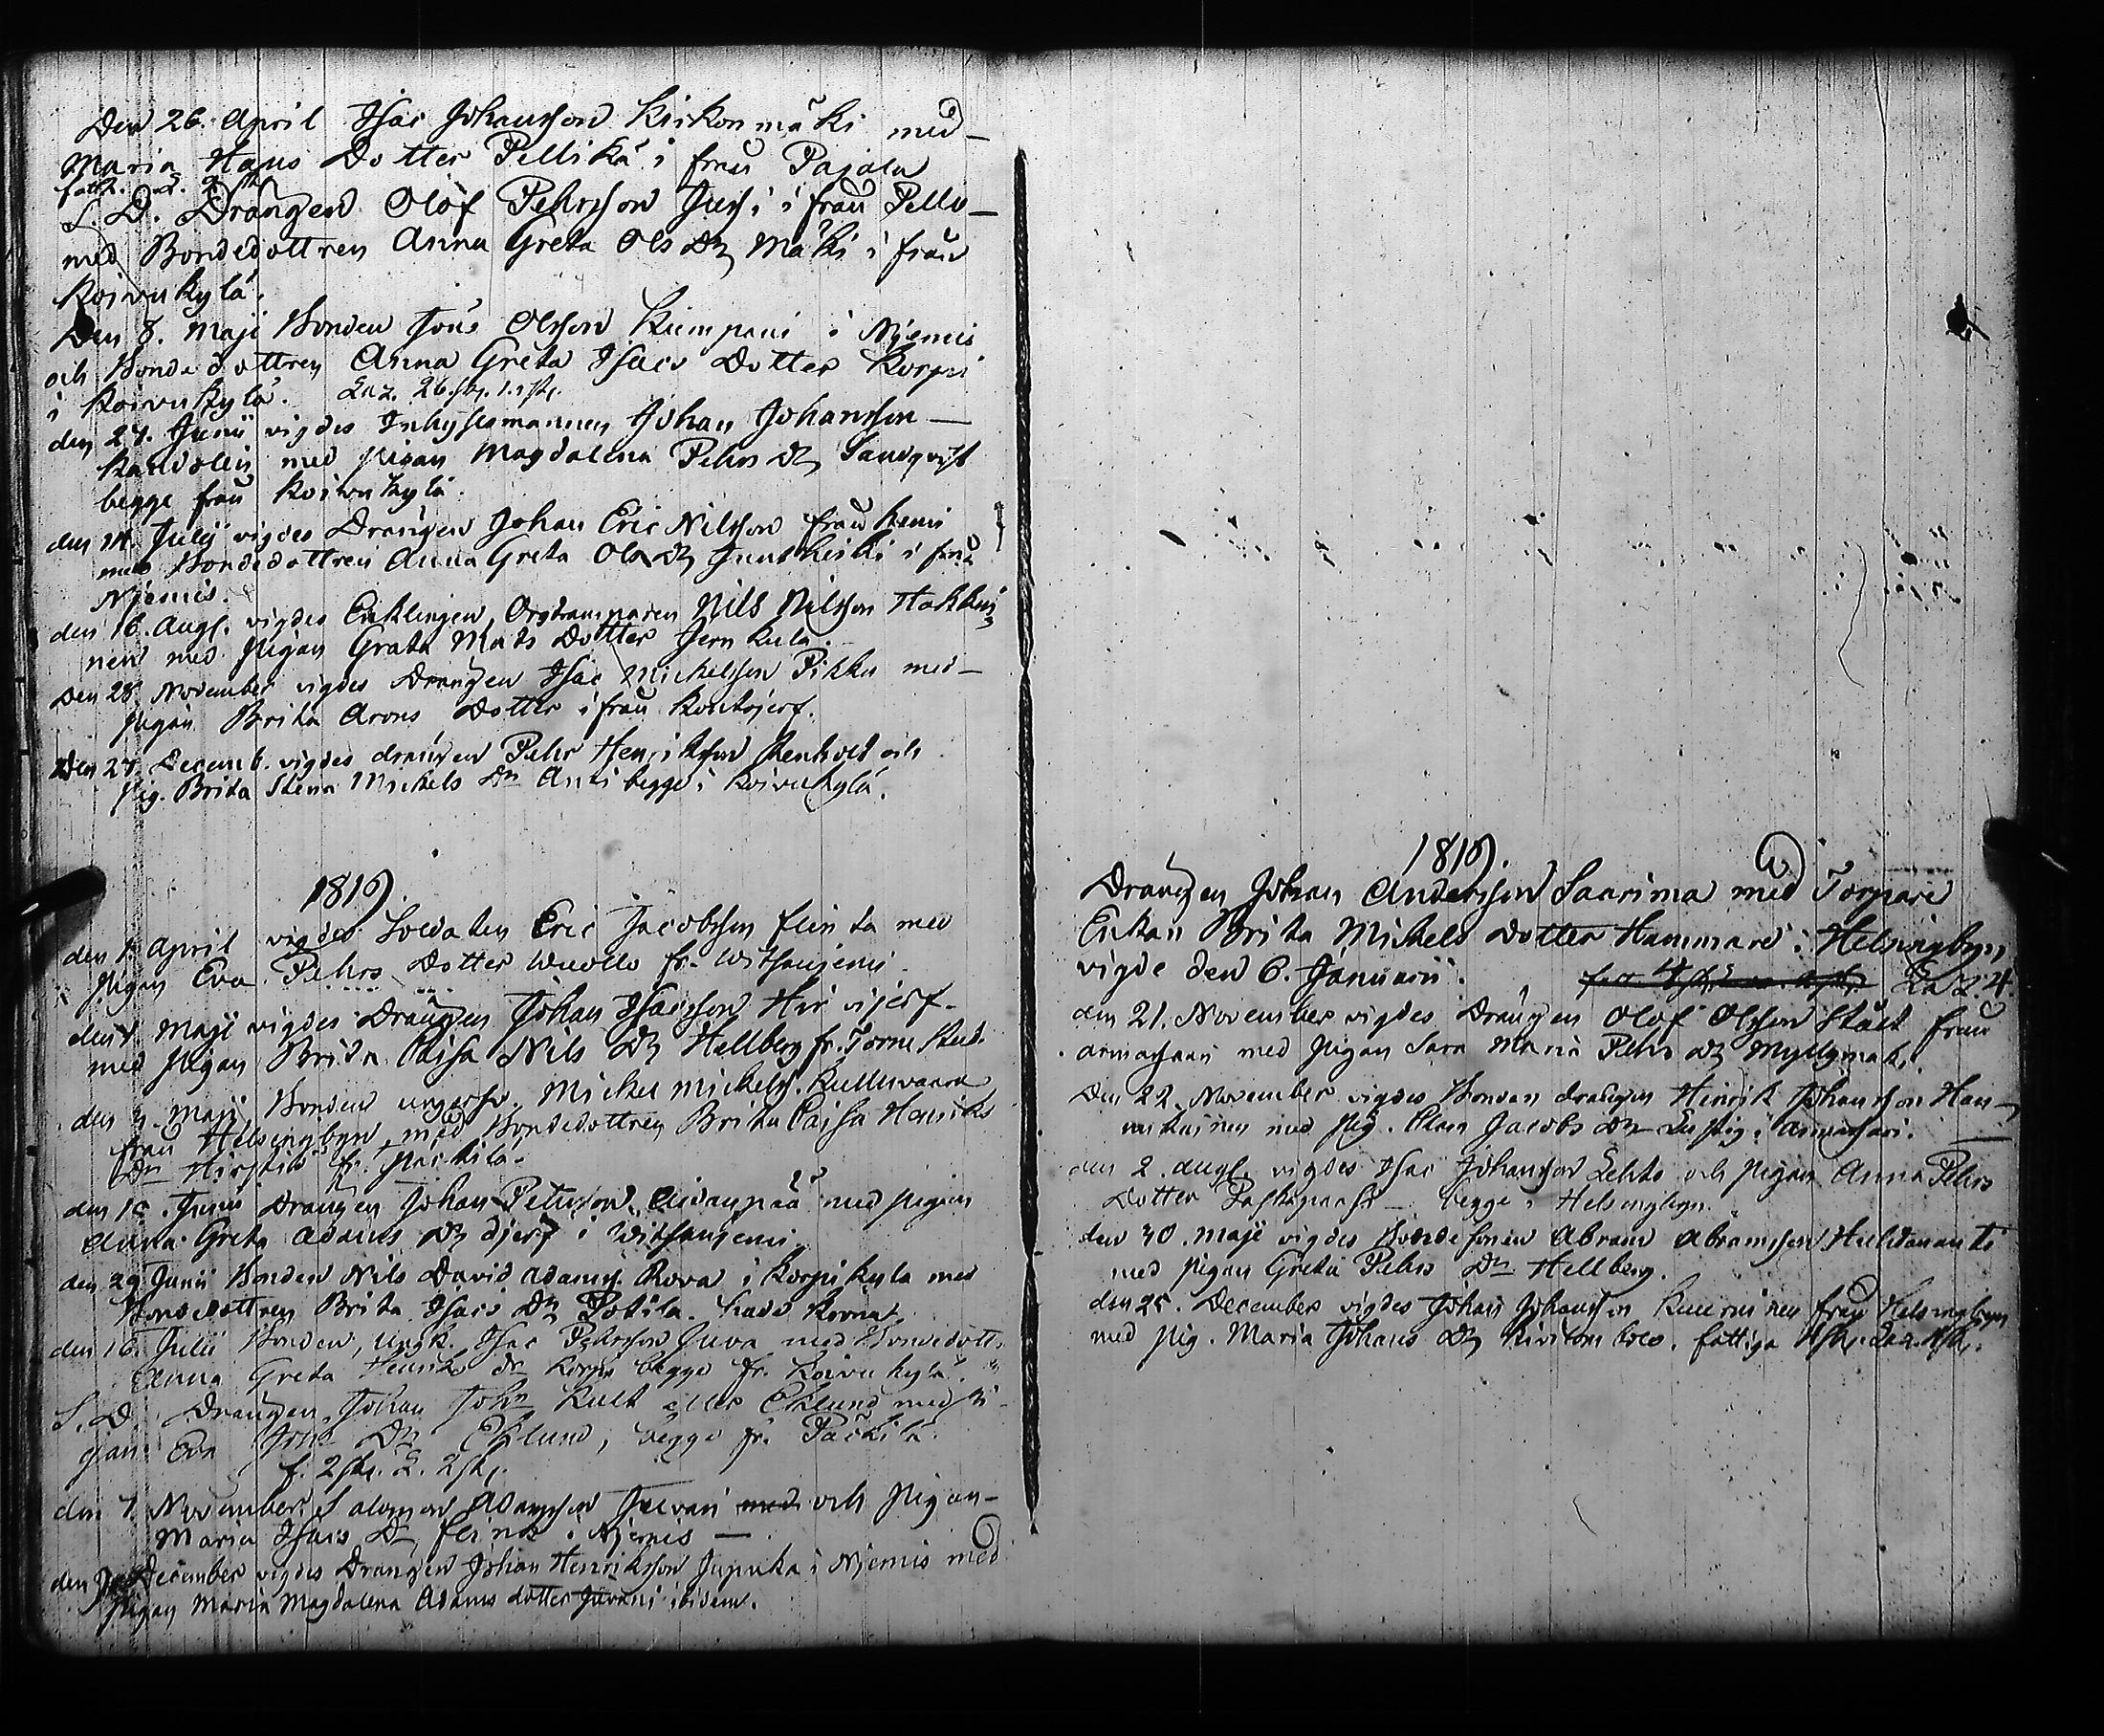 Den 26. April Isac Johansson Kirkonmäki med
Maria Hans Dotter Pellikä i från Pajala
fatt. L. 2 sk
S. D. Drängen Olof Pehrsson Jussi i från Pello
med Bondedottren Anna Greta Ols Dr Mäki i från
Koivukylä.
Den 8. Maji Bonden Jöns Olsson Kumpani i Njemis
och Bondedottren Anna Greta Isacs Dotter Korpi
i Koivukylä. Laz. 26 sk. 1. sk.
den 27. Junii vigdes Inhysesmannen Johan Johansson
Kandolin med pigan Magdalena Pehrs Dr Sandqvist
begge från Koivukylä.
den 14. Julij vigdes Drängen Johan Eric Nilsson från Kemi
med Bondedottren Anna Greta Ols Dr Junt i från
Njemis.
den 16. Augl. vigdes Enklingen, Orgtramparen Nils Nilsson Hakki
nen med pigan Greta Mats Dotter Jernkula.
Den 28. November vigdes Drängen Isac Michelsson Pikku med
pigan Brita Arons Dotter i från Kontojerf.
Den 27. Decemb. vigdes drängen Pehr Henriksson och
pig. Brita Stena Michels Dr Anti begge i Koivukylä.
1816.
den 1. April vigdes Soldaten Eric Jacobsson Flinta med
pigan Eva Pehrs Dotter Wuollo fr. Witsanjemi
den Maji vigdes Drängen Johan Isacsson Hirvijerf
med pigan Brita Caisa Nils Dr Hellberg fr. Torne Stad.
den Maji Bonden Michel Michels. Kulluvaara
från Helsingbyn, med Bondedottren Brita Caisa Henriks
Dr fr. Päckilä.
den Junii Drängen Johan Petersson med pigan
Anna Greta Adams Dr Djerf i Witsanjemi.
den 29 Junii Bonden Nils David Adams. Rova i Korpikyla med
Bondedottren Brita Isacs Dr Potila.
den 16. Julii Bonden, ungk. Isac Pehrsson Juva med Bondedott.
Anna Greta Henriks dr Korpi begge fr. Koivukylä.
S. D. Drängen, Johan Johs Kult eller Eklund med pi
gan Eva Johs Dr Eklund, begge fr. Päckilä.
f. 2 sk. L. 2 sk.
den 7. November Salomon Adamsson Juvani med och pigan
Maria Isacs Dr i Njemis
den December vigdes Drängen Johan Henriksson Jupuka i Njemis med
pigan Maria Magdalena Adams dotter Juvani ibidem.
1816.
Drängen Johan Andersson Saarima med Torpare
Enkan Brita Michels Dotter Hammare i Helsingbyn
vigde den 6. Januarii. Laz. 4.
den 21. November vigdes Drängen Olof Olsson Stält från
armassaari med pigan Sara Maria Pehrs dr Myllymaki.
Den 22. November vigdes Bonden drängen Hinrik Johansson Han
nukainen med pig. Clara Jacobs dr i armassari.
den 2. Augl. vigdes Isac Johansson Lehto och pigan Anna Pehrs
Dotter begge i Helsingbyn.
den 30. Maji vigdes Bondesonen Abram Abramsson Huhtananti
med pigan Greta Pehrs Dr Hellberg.
den 25. December vigdes Johan Johansson från Helsingbyn
med pig. Maria Johans Dr. fattiga 4 sk. Laz. 4 sk.